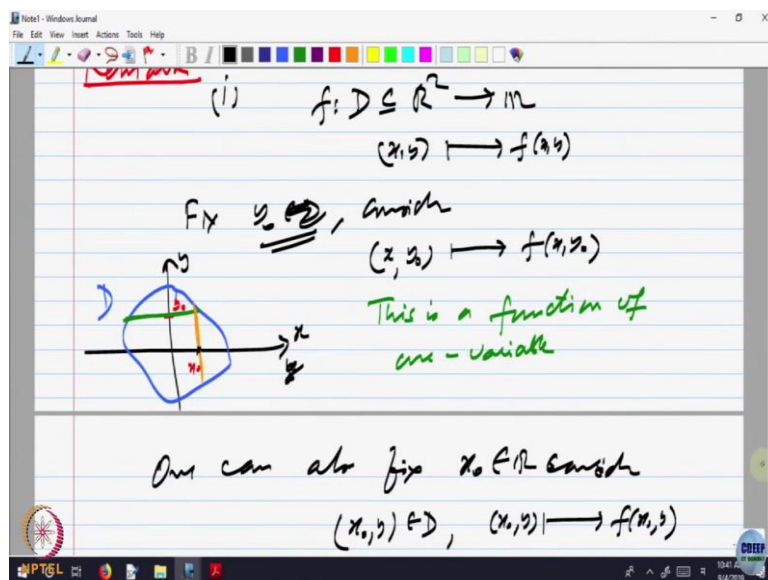 Note1 - Windows Journal
File Edit View Insert Actions Tools Help
B I
Remark
(i) f: D ⊆ R² → R
(x,y) ↦ f(x,y)
Fix y₀, consider
(x, y₀) ↦ f(x,y₀)
y
D
y₀
x
x₀
This is a function of
one-variable
One can also fix x₀ ∈ R consider
(x₀,y) ∈ D, (x₀,y) ↦ f(x₀,y)
NPTEL
CDEEP
IIT BOMBAY
10:41 A